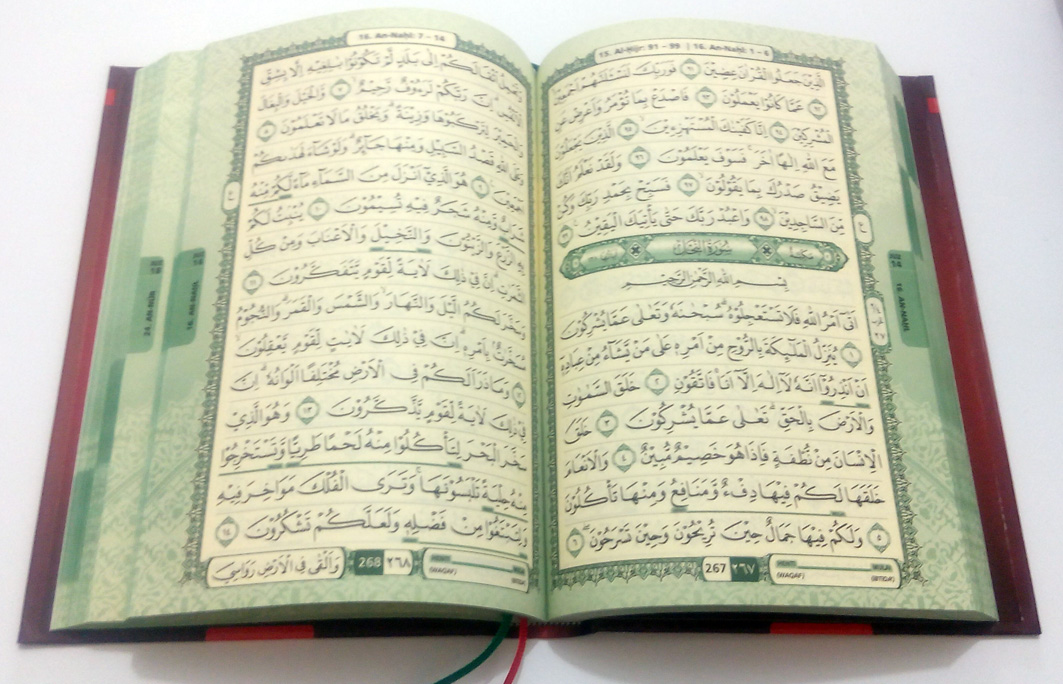 15. Al-Ḥijr: 91 – 99 | 16. An-Naḥl: 1 – 6
الَّذِيْنَ جَعَلُوا الْقُرْاٰنَ عِضِيْنَ ٩١ فَوَرَبِّكَ لَنَسْـَٔلَنَّهُمْ اَجْمَعِيْنَ
٩٢ عَمَّا كَانُوْا يَعْمَلُوْنَ ٩٣ فَاصْدَعْ بِمَا تُؤْمَرُ وَاَعْرِضْ عَنِ
الْمُشْرِكِيْنَ ٩٤ اِنَّا كَفَيْنٰكَ الْمُسْتَهْزِءِيْنَ ٩٥ الَّذِيْنَ يَجْعَلُوْنَ
مَعَ اللّٰهِ اِلٰهًا اٰخَرَۚ فَسَوْفَ يَعْلَمُوْنَ ٩٦ وَلَقَدْ نَعْلَمُ اَنَّكَ
يَضِيْقُ صَدْرُكَ بِمَا يَقُوْلُوْنَ ٩٧ فَسَبِّحْ بِحَمْدِ رَبِّكَ وَكُنْ
مِّنَ السّٰجِدِيْنَ ٩٨ وَاعْبُدْ رَبَّكَ حَتّٰى يَأْتِيَكَ الْيَقِيْنُ ٩٩
مكية سورة النحل
بِسْمِ اللّٰهِ الرَّحْمٰنِ الرَّحِيْمِ
اَتٰىٓ اَمْرُ اللّٰهِ فَلَا تَسْتَعْجِلُوْهُۗ سُبْحٰنَهٗ وَتَعٰلٰى عَمَّا يُشْرِكُوْنَ
١ يُنَزِّلُ الْمَلٰۤىِٕكَةَ بِالرُّوْحِ مِنْ اَمْرِهٖ عَلٰى مَنْ يَّشَاۤءُ مِنْ عِبَادِهٖٓ
اَنْ اَنْذِرُوْٓا اَنَّهٗ لَآ اِلٰهَ اِلَّآ اَنَا۠ فَاتَّقُوْنِ ٢ خَلَقَ السَّمٰوٰتِ
وَالْاَرْضَ بِالْحَقِّۗ تَعٰلٰى عَمَّا يُشْرِكُوْنَ ٣ خَلَقَ
الْاِنْسَانَ مِنْ نُّطْفَةٍ فَاِذَا هُوَ خَصِيْمٌ مُّبِيْنٌ ٤ وَالْاَنْعَامَ
خَلَقَهَا لَكُمْ فِيْهَا دِفْءٌ وَّمَنَافِعُ وَمِنْهَا تَأْكُلُوْنَ
٥ وَلَكُمْ فِيْهَا جَمَالٌ حِيْنَ تُرِيْحُوْنَ وَحِيْنَ تَسْرَحُوْنَۖ ٦
267 ٢٦٧
(WAQAF)
(IBTIDA')
16. AN-NAḤL
16. An-Naḥl: 7 – 14
وَتَحْمِلُ اَثْقَالَكُمْ اِلٰى بَلَدٍ لَّمْ تَكُوْنُوْا بٰلِغِيْهِ اِلَّا بِشِقِّ
الْاَنْفُسِۗ اِنَّ رَبَّكُمْ لَرَءُوْفٌ رَّحِيْمٌۙ ٧ وَّالْخَيْلَ وَالْبِغَالَ
وَالْحَمِيْرَ لِتَرْكَبُوْهَا وَزِيْنَةًۗ وَيَخْلُقُ مَا لَا تَعْلَمُوْنَ ٨
وَعَلَى اللّٰهِ قَصْدُ السَّبِيْلِ وَمِنْهَا جَاۤىِٕرٌۗ وَلَوْ شَاۤءَ لَهَدٰىكُمْ
اَجْمَعِيْنَ ٩ هُوَ الَّذِيْٓ اَنْزَلَ مِنَ السَّمَاۤءِ مَاۤءً لَّكُمْ مِّنْهُ
شَرَابٌ وَّمِنْهُ شَجَرٌ فِيْهِ تُسِيْمُوْنَ ١٠ يُنْۢبِتُ لَكُمْ
بِهِ الزَّرْعَ وَالزَّيْتُوْنَ وَالنَّخِيْلَ وَالْاَعْنَابَ وَمِنْ كُلِّ
الثَّمَرٰتِۗ اِنَّ فِيْ ذٰلِكَ لَاٰيَةً لِّقَوْمٍ يَّتَفَكَّرُوْنَ ١١
وَسَخَّرَ لَكُمُ الَّيْلَ وَالنَّهَارَۙ وَالشَّمْسَ وَالْقَمَرَۗ وَالنُّجُوْمُ
مُسَخَّرٰتٌۢ بِاَمْرِهٖۗ اِنَّ فِيْ ذٰلِكَ لَاٰيٰتٍ لِّقَوْمٍ يَّعْقِلُوْنَۙ
١٢ وَمَا ذَرَاَ لَكُمْ فِى الْاَرْضِ مُخْتَلِفًا اَلْوَانُهٗۗ اِنَّ
فِيْ ذٰلِكَ لَاٰيَةً لِّقَوْمٍ يَّذَّكَّرُوْنَ ١٣ وَهُوَ الَّذِيْ
سَخَّرَ الْبَحْرَ لِتَأْكُلُوْا مِنْهُ لَحْمًا طَرِيًّا وَّتَسْتَخْرِجُوْا
مِنْهُ حِلْيَةً تَلْبَسُوْنَهَاۚ وَتَرَى الْفُلْكَ مَوَاخِرَ فِيْهِ
وَلِتَبْتَغُوْا مِنْ فَضْلِهٖ وَلَعَلَّكُمْ تَشْكُرُوْنَ ١٤
وَاَلْقٰى فِى الْاَرْضِ رَوَاسِيَ
268 ٢٦٨
(WAQAF)
(IBTIDA')
24. AN-NŪR